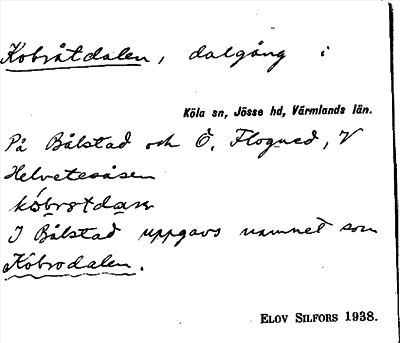 Kobråtdalen, dalgång i
Köla sn, Jösse hd, Värmlands län.
På Bålstad och Ö. Flogned, V
Helvetesåsen
I Bålstad uppgavs namnet som
Kobrodalen.
ELOV SILFORS 1938.